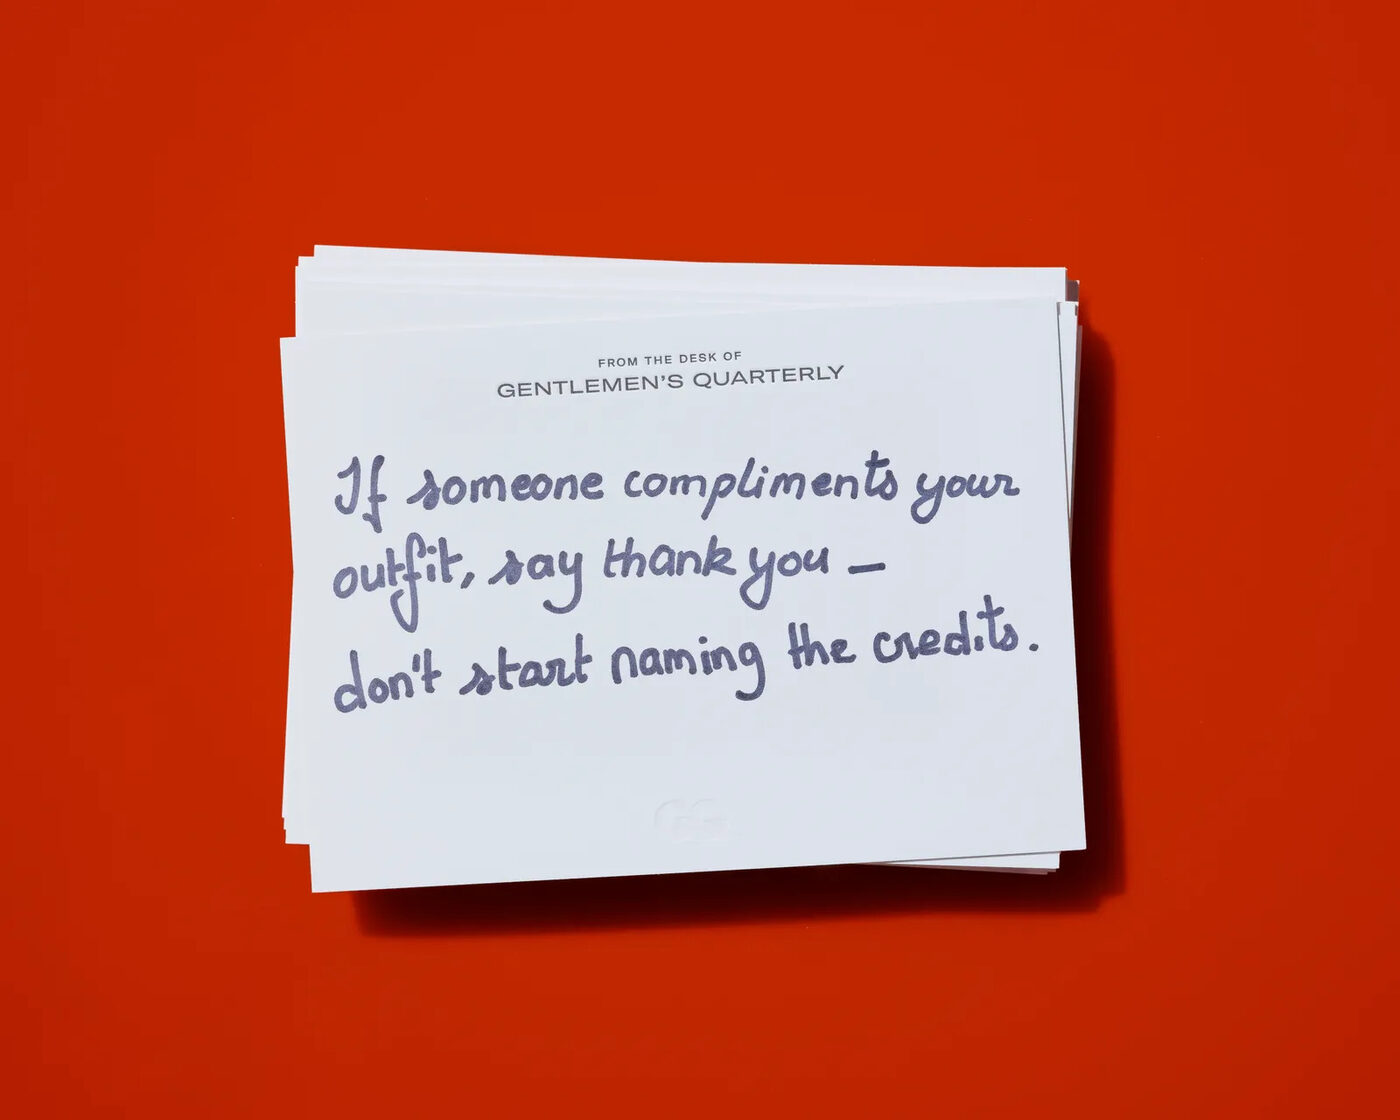 FROM THE DESK OF
GENTLEMEN'S QUARTERLY
If someone compliments your
outfit, say thank you —
don't start naming the credits.